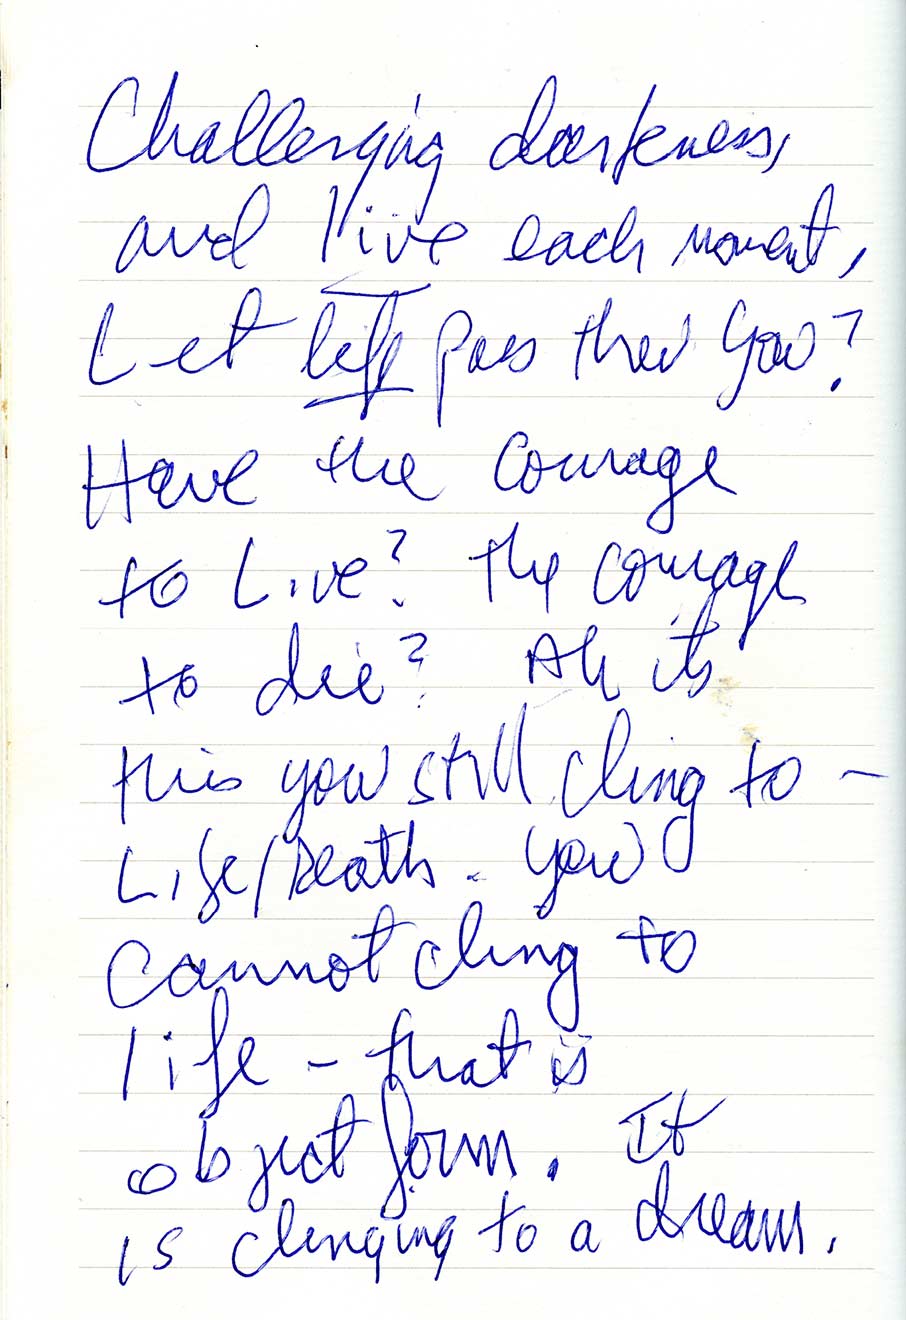 Challenging darkness,
and live each moment,
Let life pass thru you?
Have the courage
to Live? The courage
to die? Ah its
this you still cling to –
Life/Death. You
cannot cling to
life – that is
object form. It
is clinging to a dream.